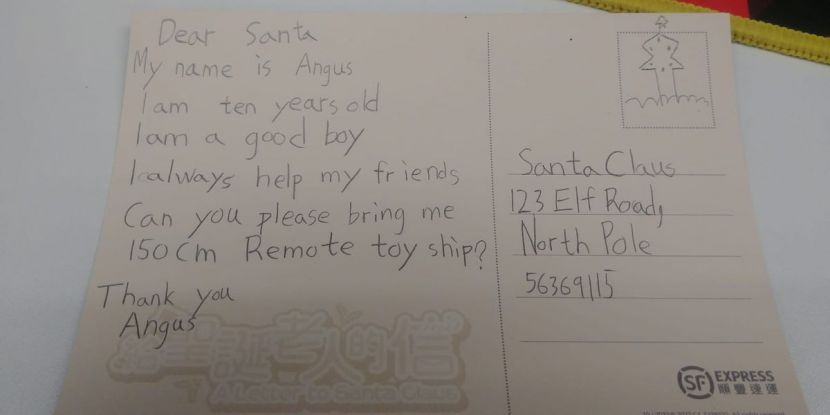 Dear Santa
My name is Angus
I am ten years old
I am a good boy
I always help my friends
Can you please bring me
150 cm Remote toy ship?
Thank you
Angus
給聖誕老人的信
A Letter to Santa Claus
Santa Claus
123 Elf Road,
North Pole
56369115
SF EXPRESS
順豐速運